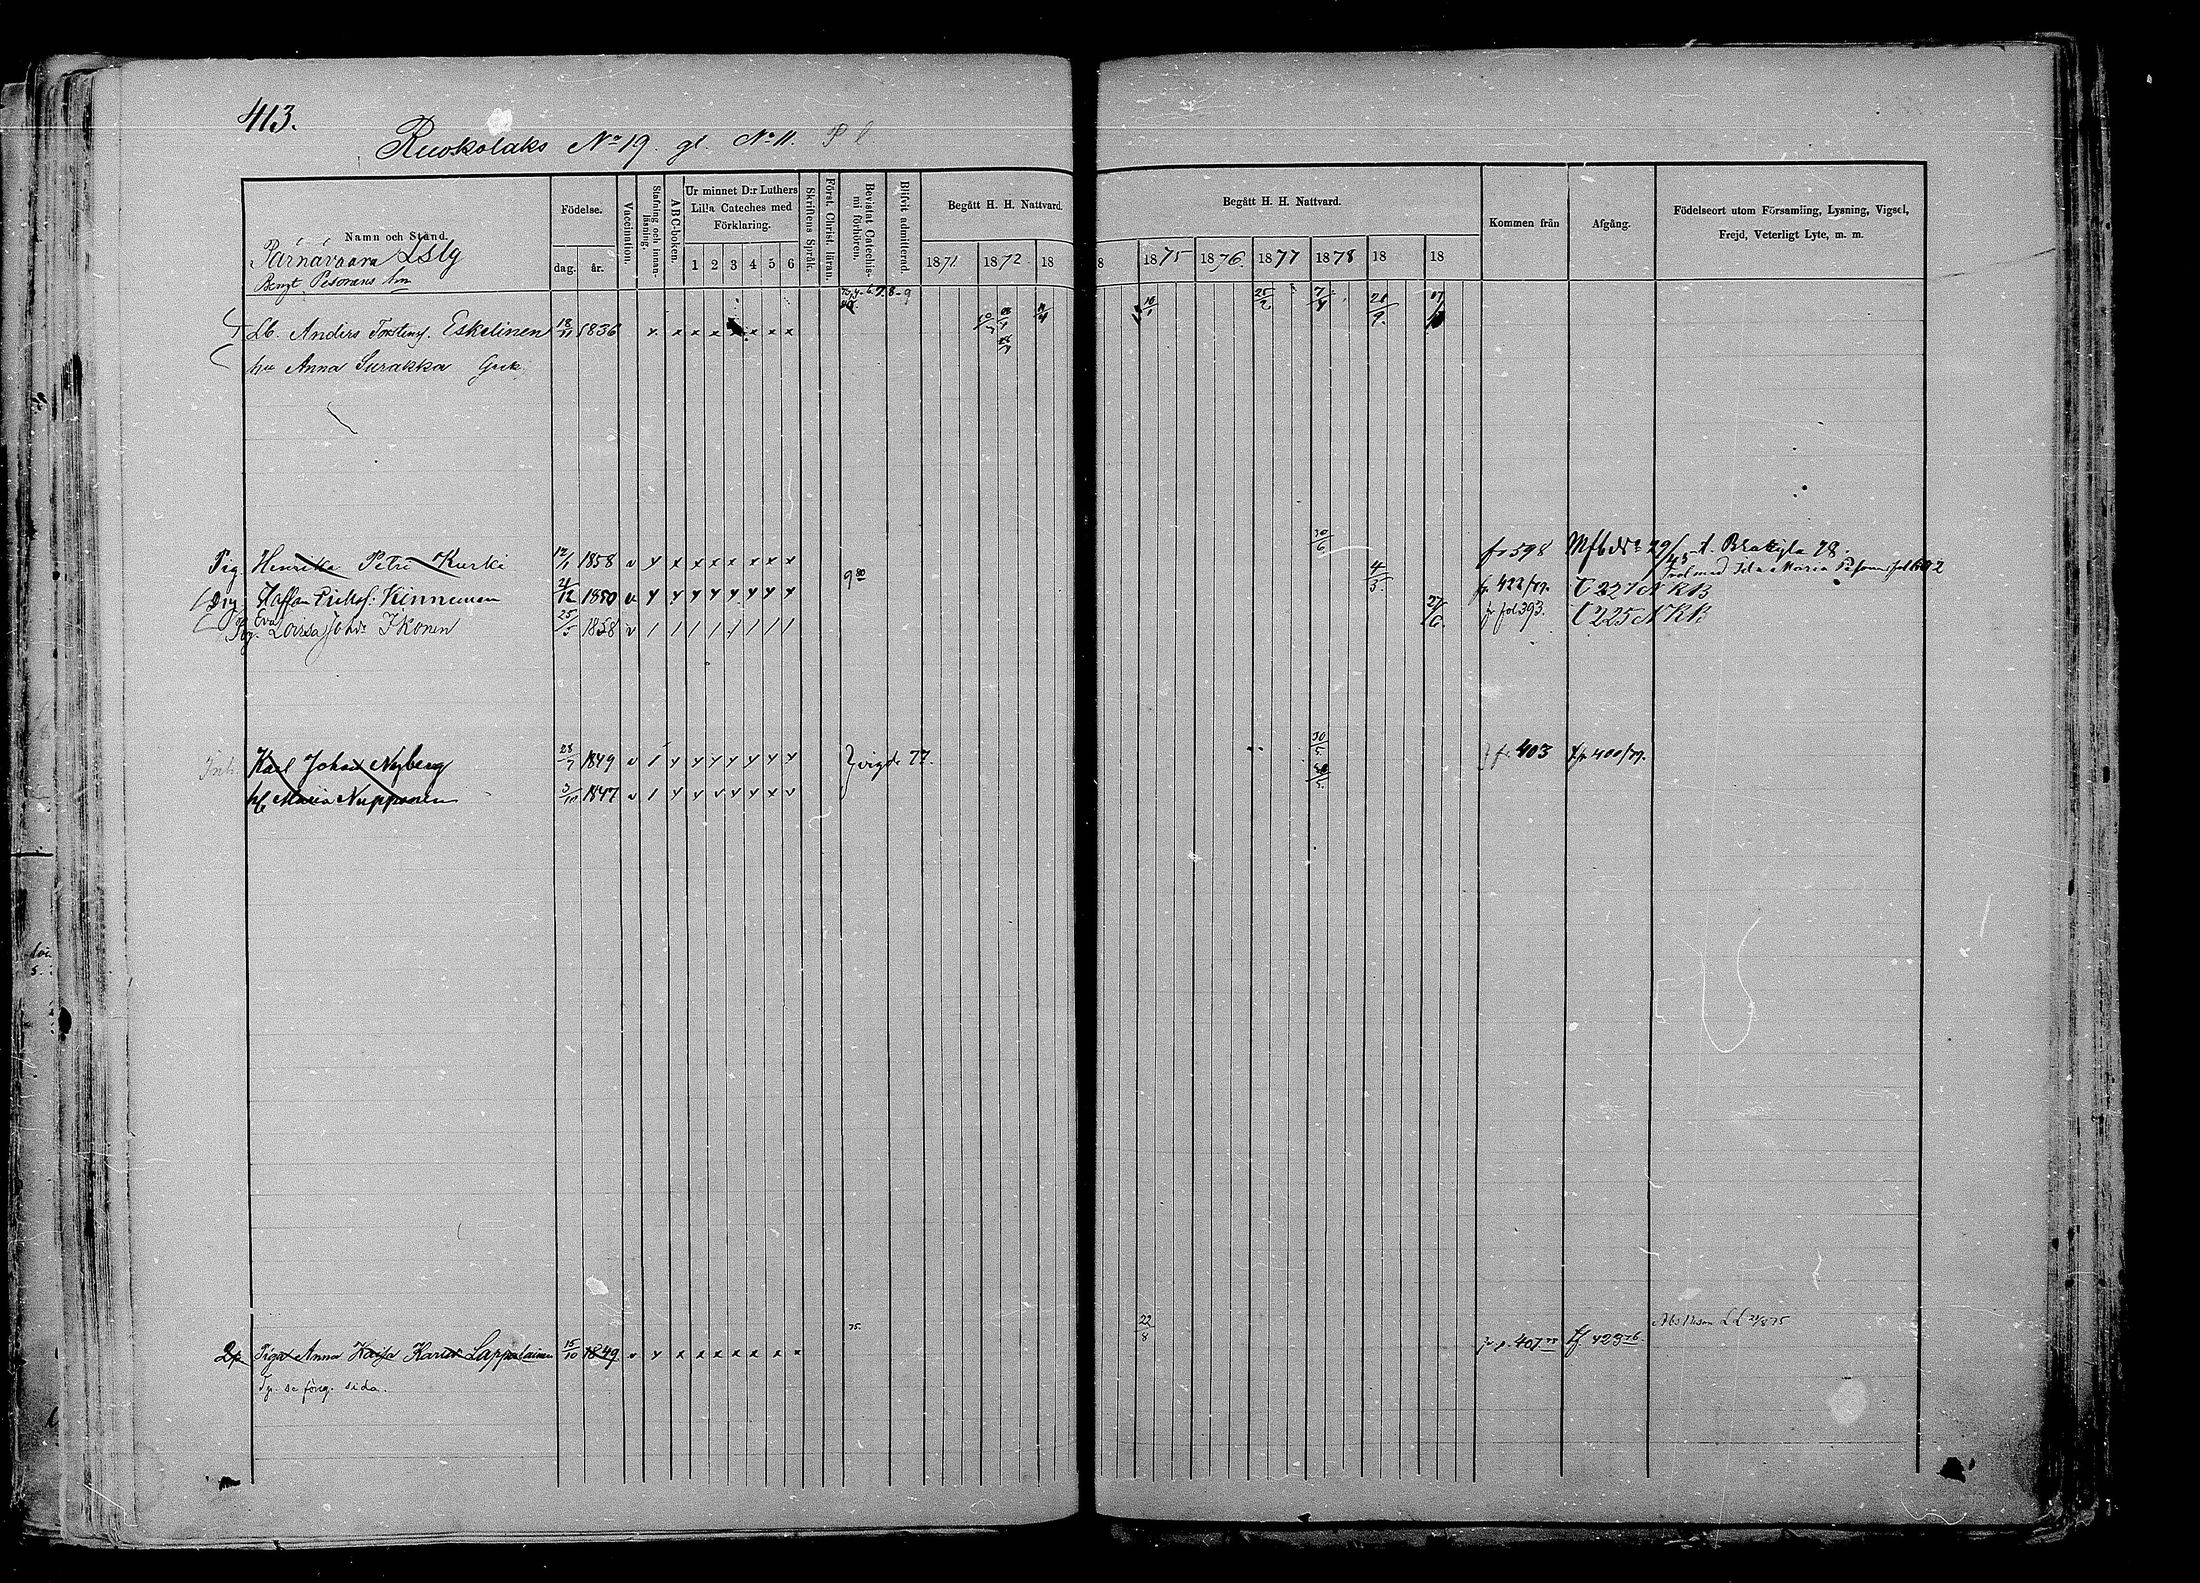 413.
Ruokolaks No 19. gl. No 11.
Namn och Stånd.
Födelse.
dag.
år.
Vaccination.
Stafning och innanläsning.
ABC-boken.
Ur minnet D:r Luthers Lilla Cateches med Förklaring.
1 2 3 4 5 6
Skriftens Språk.
Först. Christ. läran.
Bevistat Catechismi förhören.
Blifvit admitterad.
Begått H. H. Nattvard.
1871 1872. 18
Begått H. H. Nattvard.
8 1875 1876. 1877 1878 18 18
Kommen från
Afgång.
Födelseort utom Församling, Lysning, Vigsel, Frejd, Veterligt Lyte, m. m.
Pärnävaara Lslg
Bengt Pesonens hm
Lb. Anders Torstens. Eskelinen 1836 x x x x x x x x
hu Anna Surakka Grek.
Pig. Henrika Petri Kurki 12/1 1858 v y x x x x x x x 30/6 fr 598
Drg Staffan Eriks. Kinnunen 21/12 1850 v y y y y y y y y 9 80 4/3. fr. 422/79. C 227 N K B
Eva
Pig. Lovisa Joh:dr Ikonen 25/5 1858 v / / / / / / / / 27/6. fr fol 393. C 225 N K B
Inh. Karl Johan Nyberg 28/7 1849 v / y y y y y y y } vigde 77. 30/5. } fr. 403 t.p 400/79.
h. Maria Nupponen 3/10 1847 v / y y v y y x v 30/5.
22/8
2p Piga Anna Kaisa Karlsd Lappalainen 15/10 1849 v y x x x x x x x 75. fr p. 407. 75 tf. 423 76
Tp. se föreg. sida.